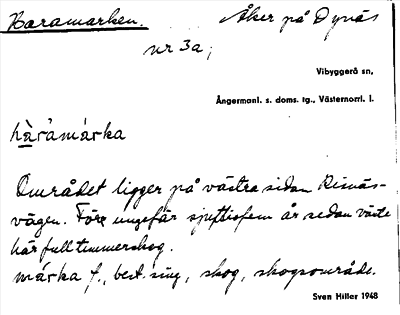 Haramarken. Åker på Dynäs
nr 3a;
Vibyggerå sn,
Ångermanl. s. doms. tg., Västernorrl. l.
hàrámárka
Området ligger på västra sidan Risnäs-
vägen. För ungefär sjuttiofem år sedan växte
här full timmerskog.
márka f., best. sing, skog, skogsområde.
Sven Hiller 1948